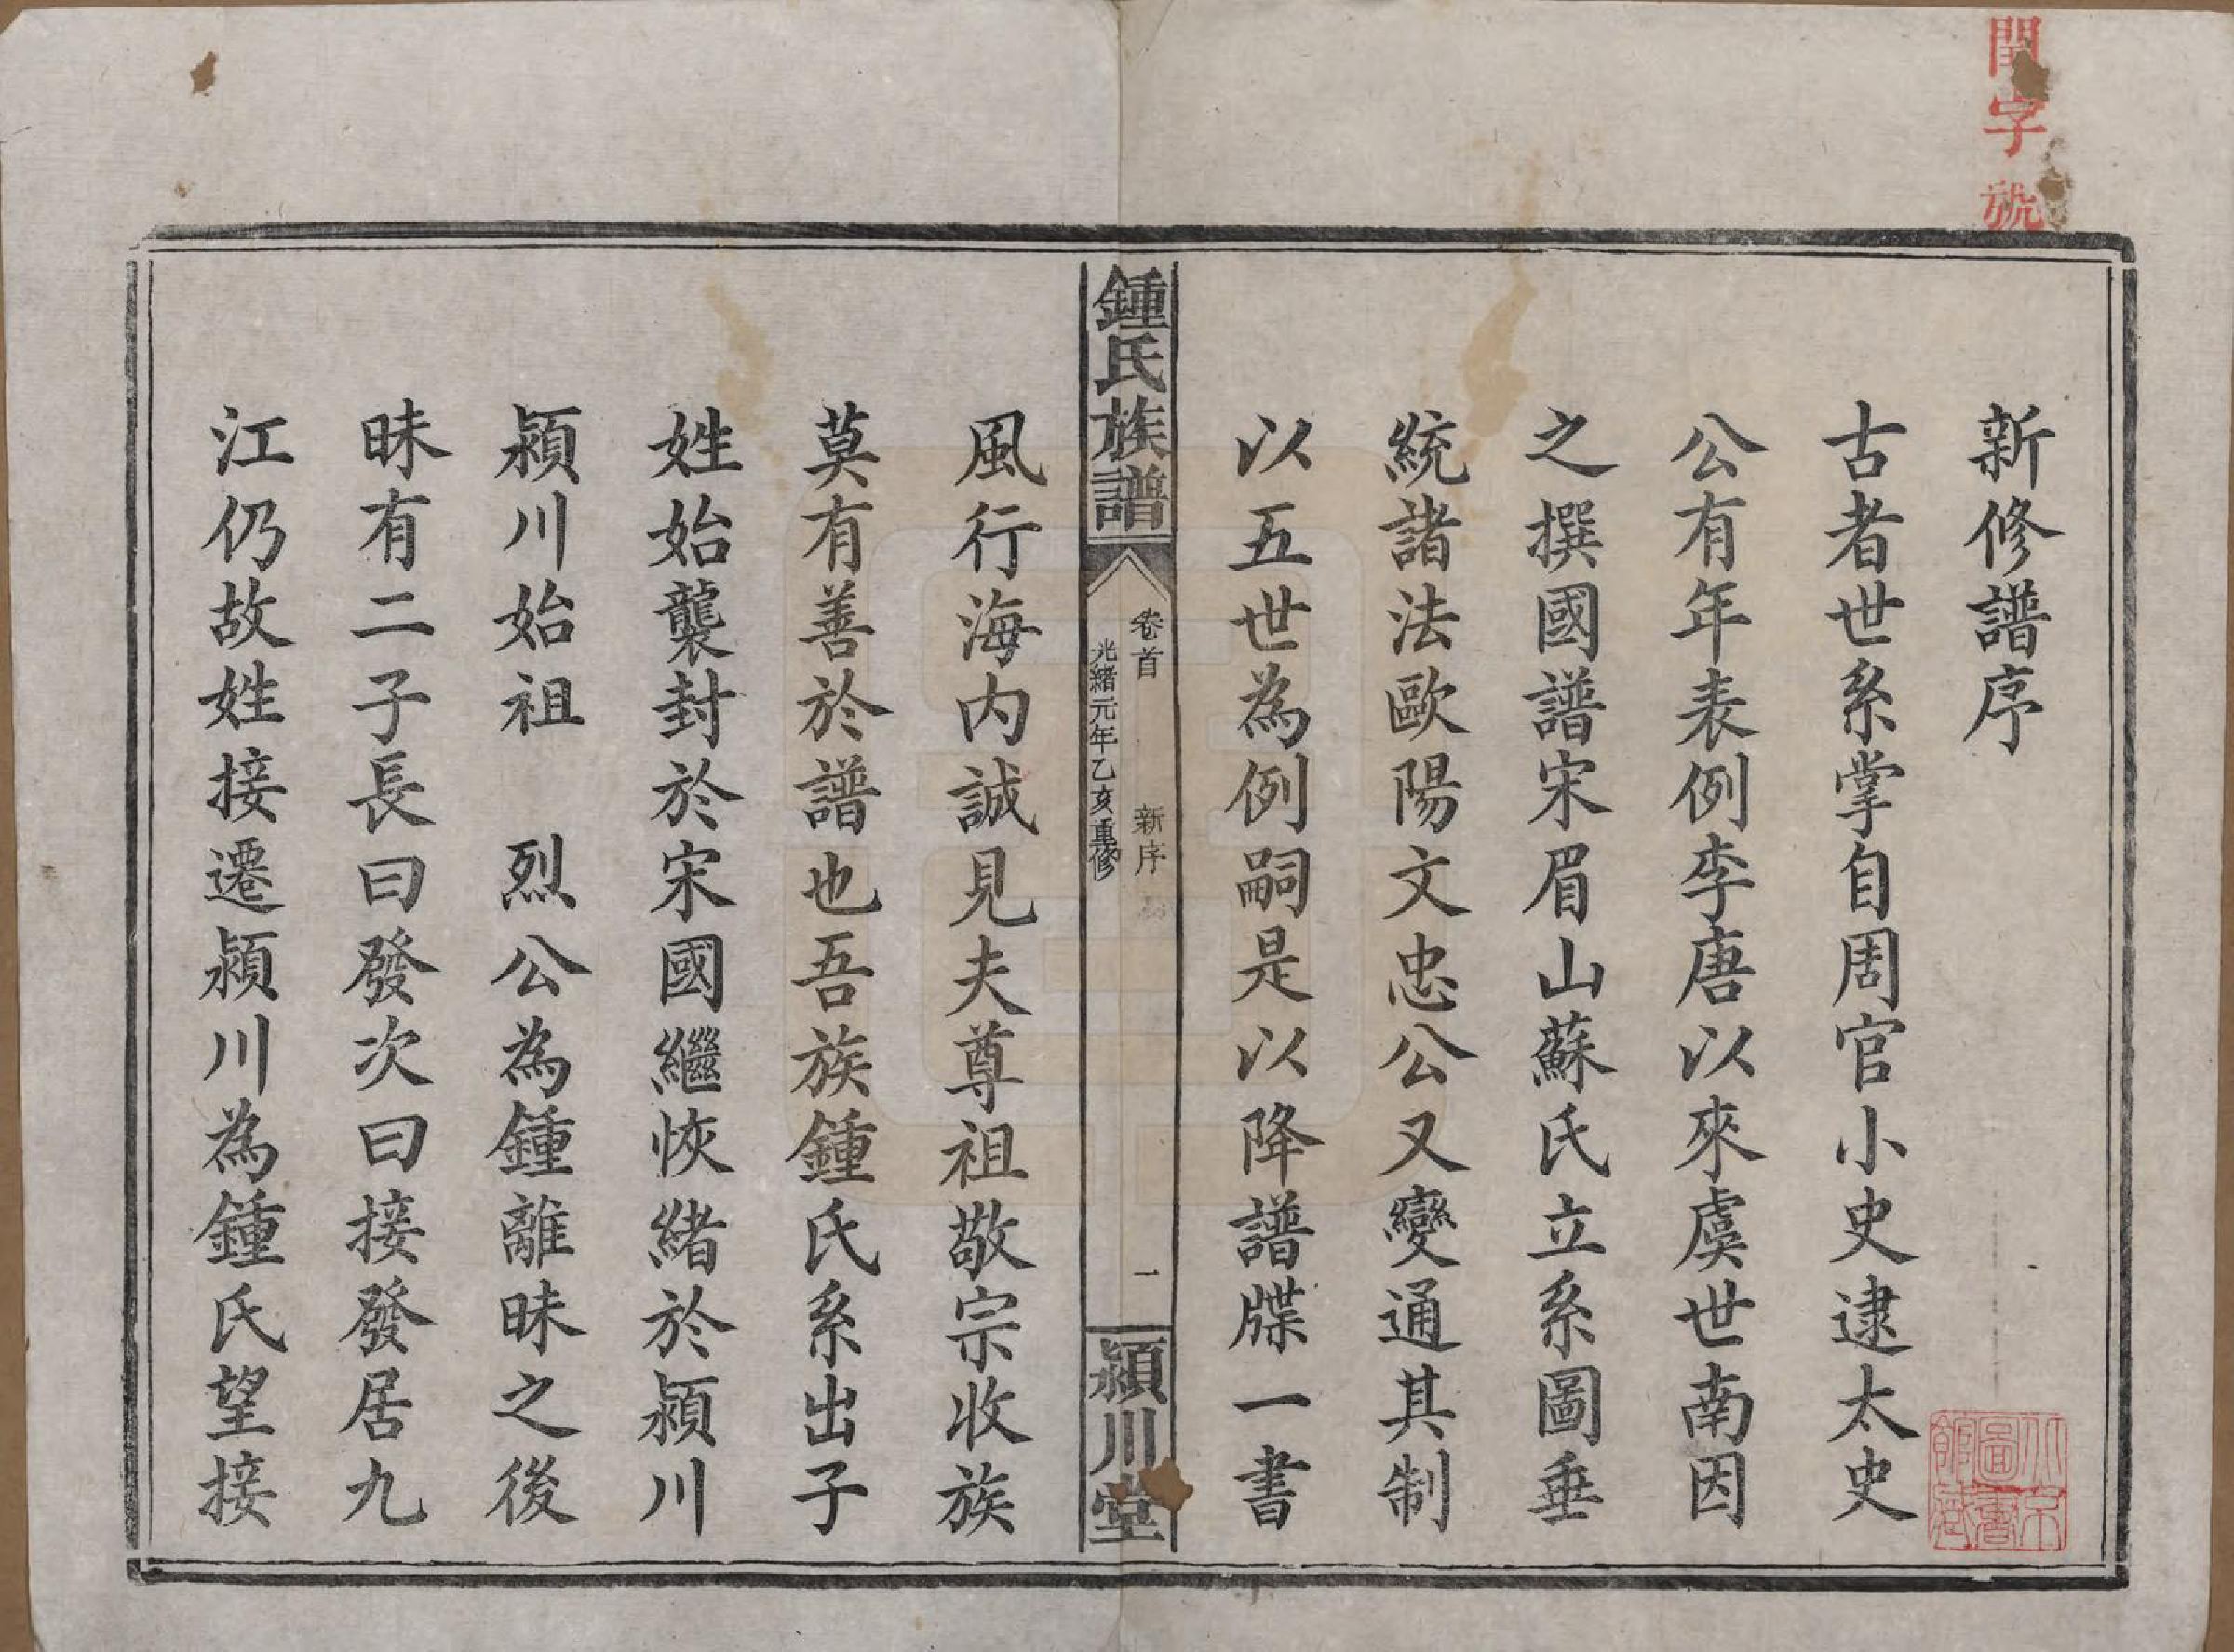 字號
新修譜序
古者世系掌自周官小史逮太史
公有年表例李唐以來虞世南因
之撰國譜宋眉山蘇氏立系圖垂
統諸法歐陽文忠公又變通其制
以五世為例嗣是以降譜牒一書
鍾氏族譜
卷首 新序
一
光緒元年乙亥重修
潁川堂
風行海內誠見夫尊祖敬宗收族
莫有善於譜也吾族鍾氏系出子
姓始襲封於宋國繼恢緒於潁川
潁川始祖 烈公為鍾離昧之後
昧有二子長曰發次曰接發居九
江仍故姓接遷潁川為鍾氏望接
北京圖書館藏